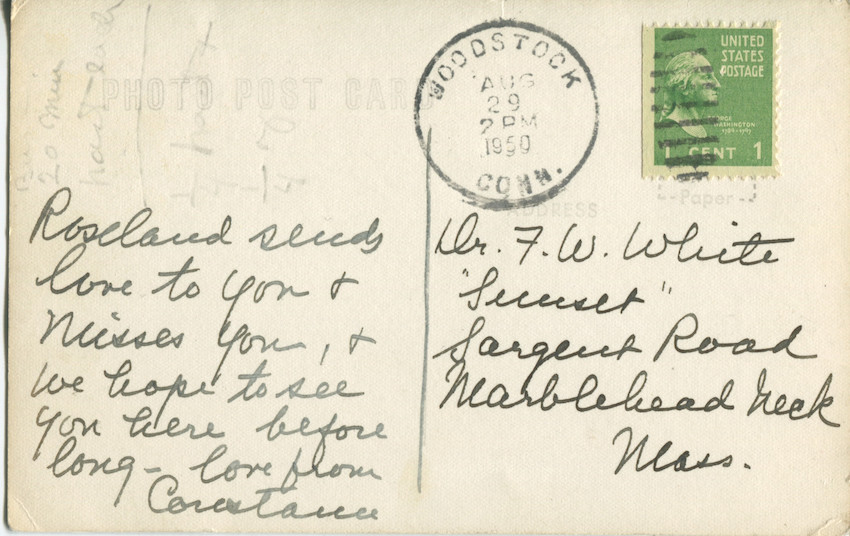 PHOTO POST CARD
20 min
WOODSTOCK
AUG
29
2 PM
1950
CONN.
UNITED
STATES
POSTAGE
GEORGE
WASHINGTON
1 CENT 1
Paper
ADDRESS
Roseland sends
love to you &
misses you, &
we hope to see
you here before
long - love from
Constance
Dr. F. W. White
"Sunset"
Sargent Road
Marblehead Neck
Mass.